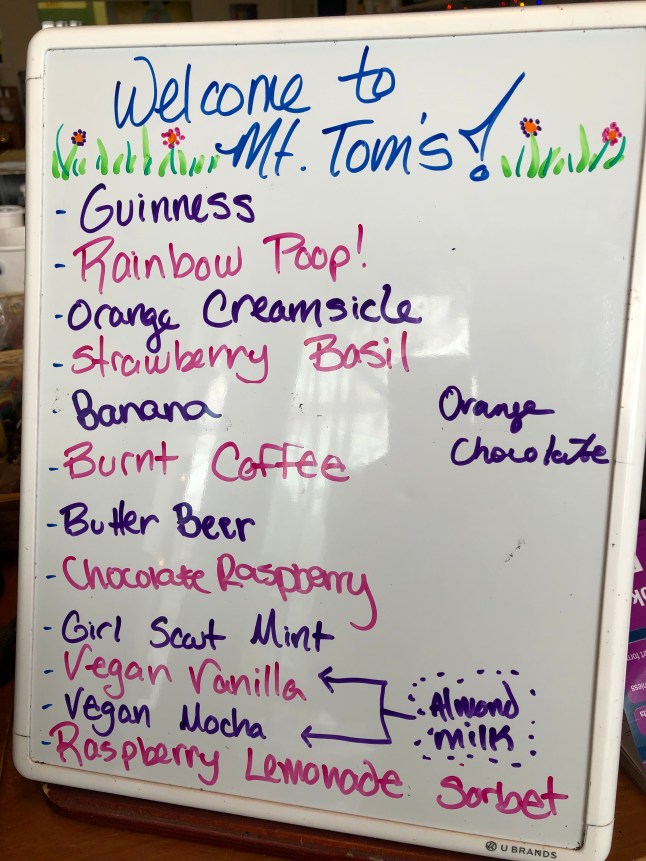 Welcome to
Mt. Tom's!
- Guinness
- Rainbow Poop!
- Orange Creamsicle
- Strawberry Basil
- Banana
Orange
Chocolate
- Burnt Coffee
- Butter Beer
- Chocolate Raspberry
- Girl Scout Mint
- Vegan Vanilla
- Vegan Mocha
Almond
milk
- Raspberry Lemonade Sorbet
U BRANDS